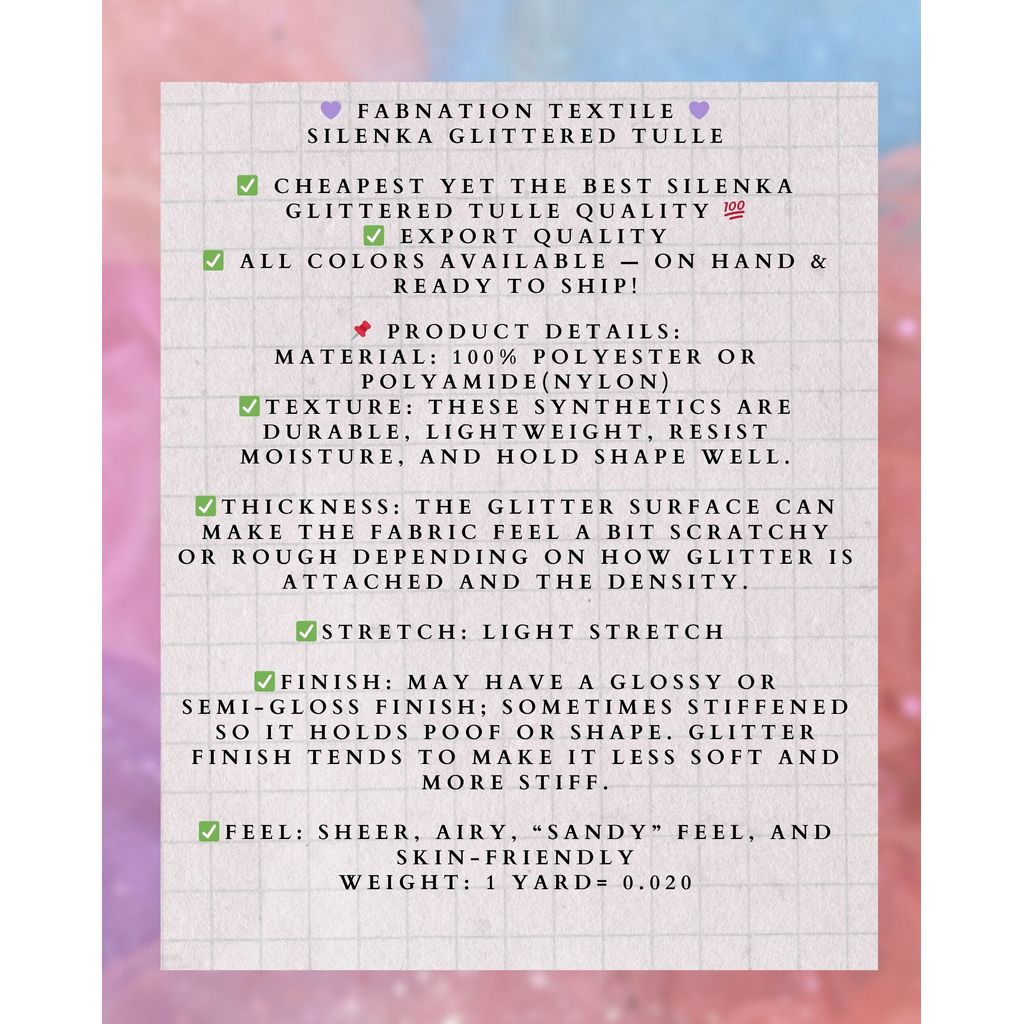 💜 FABNATION TEXTILE 💜
SILENKA GLITTERED TULLE
✅ CHEAPEST YET THE BEST SILENKA
GLITTERED TULLE QUALITY 💯
✅ EXPORT QUALITY
✅ ALL COLORS AVAILABLE – ON HAND &
READY TO SHIP!
📌 PRODUCT DETAILS:
MATERIAL: 100% POLYESTER OR
POLYAMIDE(NYLON)
✅TEXTURE: THESE SYNTHETICS ARE
DURABLE, LIGHTWEIGHT, RESIST
MOISTURE, AND HOLD SHAPE WELL.
✅THICKNESS: THE GLITTER SURFACE CAN
MAKE THE FABRIC FEEL A BIT SCRATCHY
OR ROUGH DEPENDING ON HOW GLITTER IS
ATTACHED AND THE DENSITY.
✅STRETCH: LIGHT STRETCH
✅FINISH: MAY HAVE A GLOSSY OR
SEMI-GLOSS FINISH; SOMETIMES STIFFENED
SO IT HOLDS POOF OR SHAPE. GLITTER
FINISH TENDS TO MAKE IT LESS SOFT AND
MORE STIFF.
✅FEEL: SHEER, AIRY, “SANDY” FEEL, AND
SKIN-FRIENDLY
WEIGHT: 1 YARD= 0.020